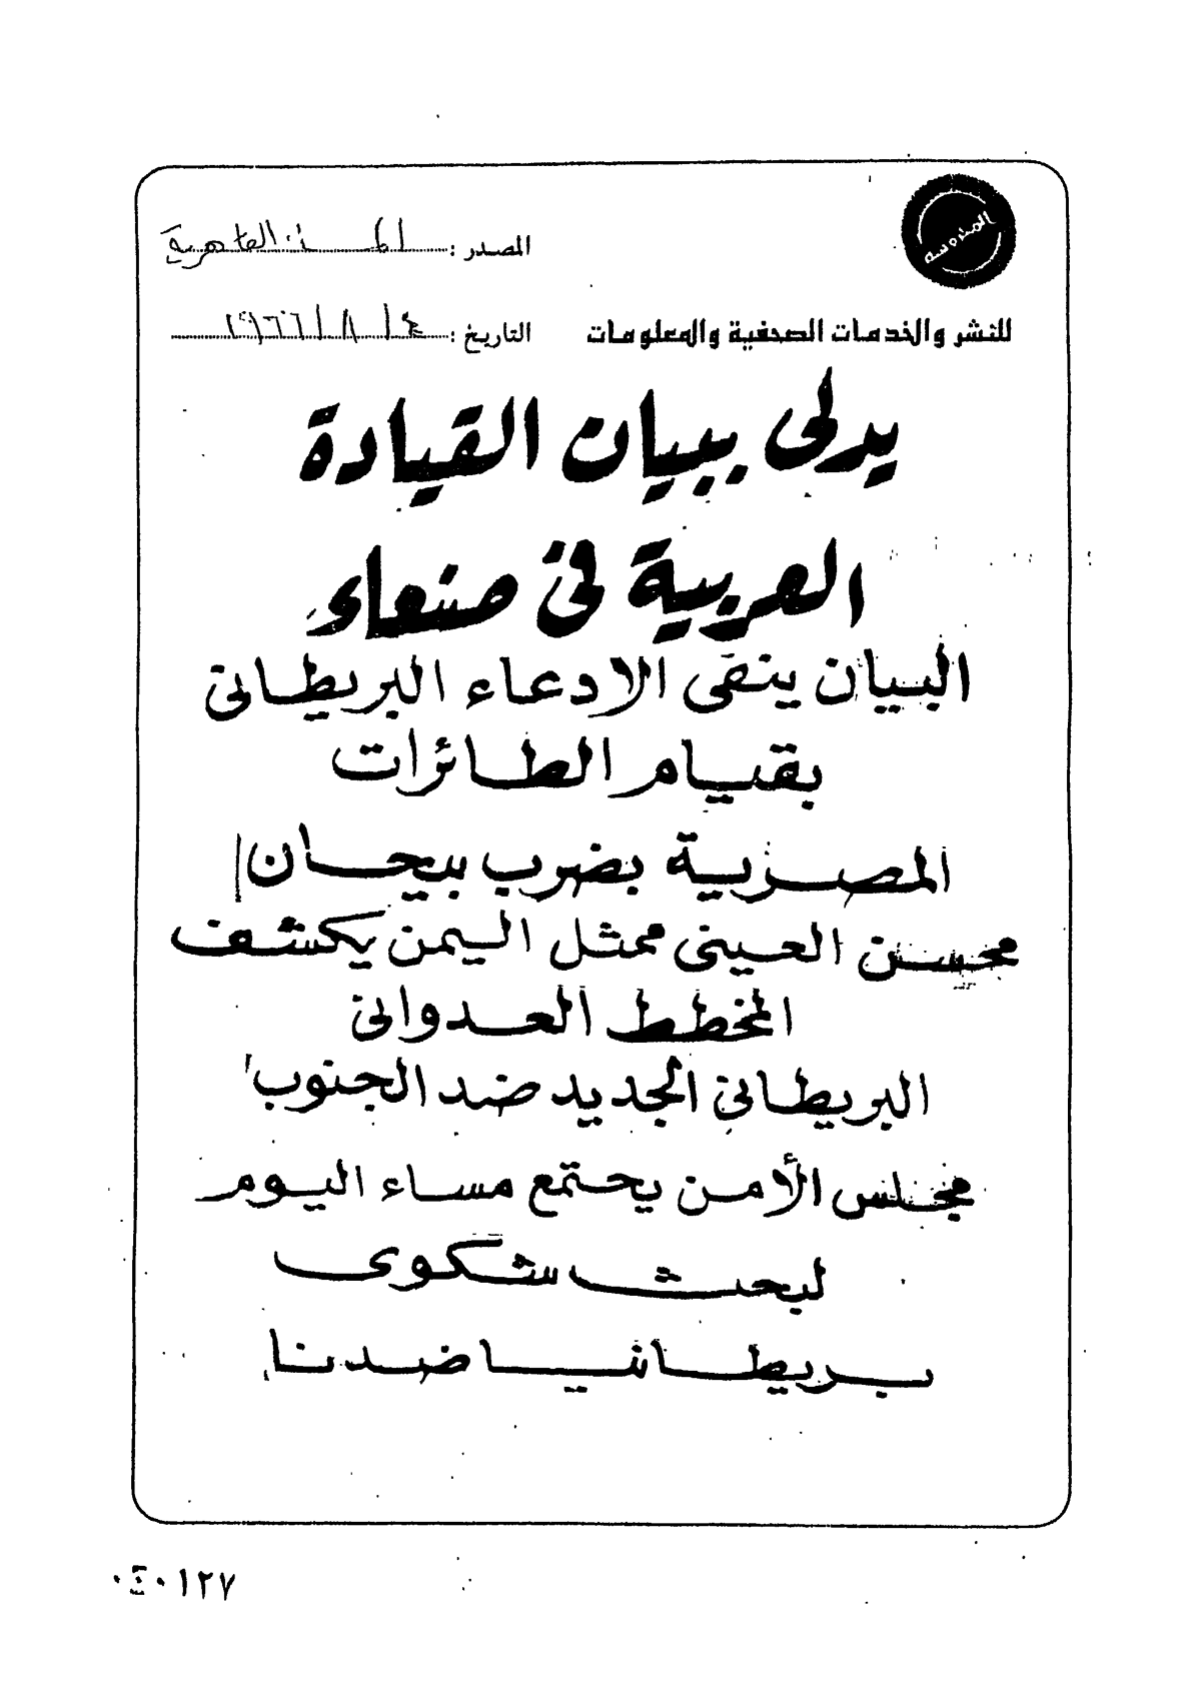 المحروسة
المصدر : القاهرية
للنشر والخدمات الصحفية والمعلومات
التاريخ : ٤ / ٨ / ١٩٦٦
يدلى ببيان القيادة
العربية فى صنعاء
البيان ينفى الادعاء البريطانى
بقيام الطائرات
المصرية بضرب بيحان
محسن العينى ممثل اليمن يكشف
المخطط العدوانى
البريطانى الجديد ضد الجنوب
مجلس الأمن يجتمع مساء اليوم
لبحث شكوى
بريطانيا ضدنا
٠٤٠١٢٧